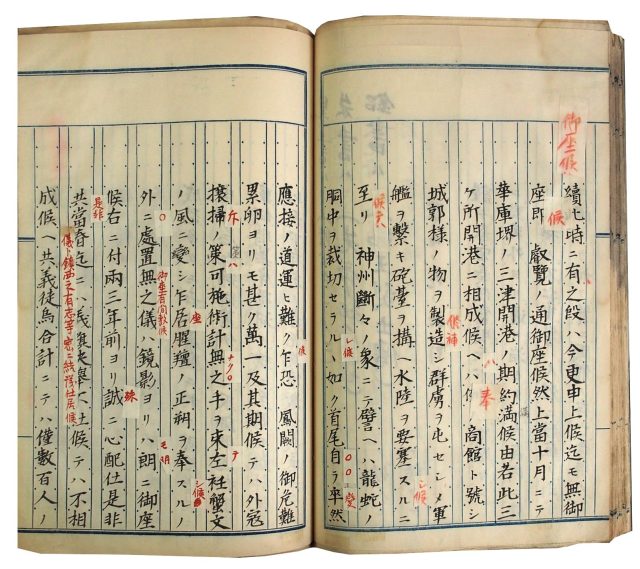 續七時ニ有之段ハ今更申上候迄モ無御
座即　叡覽ノ通御座候然上當十月ニテ
華庫堺ノ三津開港ノ期約滿候由若此三
ケ所開港ニ相成候ヘハ　商館ト號シ
城郭樣ノ物ヲ製造シ群虜ヲ屯セシメ軍
艦ヲ繋キ砲臺ヲ搆ヘ水陸ヲ要塞スルニ
至リ　神州斷々ノ象ニテ譬ヘハ龍蛇ノ
胴中ヲ裁切セラルヽ如ク首尾自ラ率然
應接ノ道運ヒ難ク乍恐　鳳闕ノ御危難
累卵ヨリモ甚ク萬一及其期候テハ外寇
攘掃ノ策可施術計無之手ヲ束左衽蟹文
ノ風ニ變シ乍居腥羶ノ正朔ヲ奉スルノ
外ニ處置無之儀ハ鏡影ヨリハ朗ニ御座
候右ニ付兩三年前ヨリ誠ニ心配仕是非
共當春迄ニハ義僕夾擧ヘ仕候テハ不相
成候ヘ共義徒烏合計ニテハ僅數百人ノ
御座候
候
奉
ハ
候
シ候
座
シ候
テ